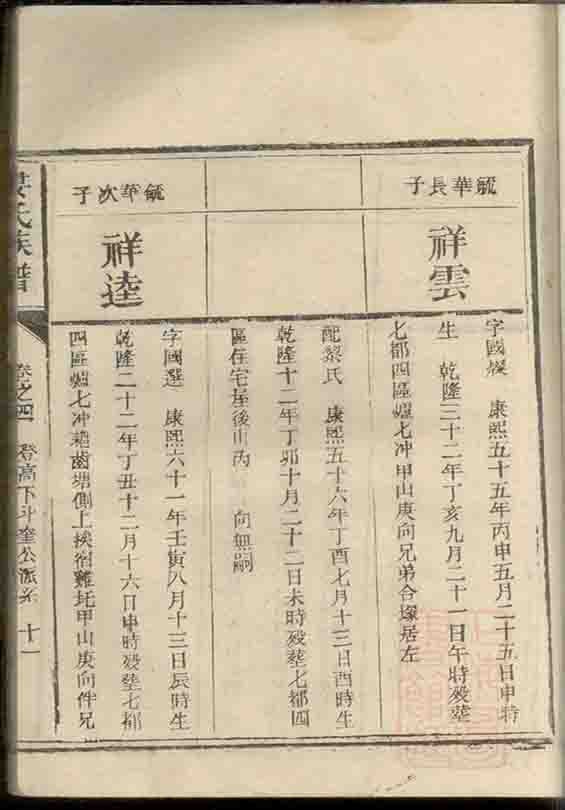 毓華長子
祥雲
字國㷡 康熙五十五年丙申五月二十五日申時
生 乾隆三十二年丁亥九月二十一日午時歿塟
七都四區嫘七冲甲山庚向兄弟合塚居左
配黎氏 康熙五十六年丁酉七月十三日酉時生
乾隆十二年丁卯十月二十二日未時歿塟七都四
區住宅屋後山丙 向無嗣
毓華次子
祥逵
字國選 康熙六十一年壬寅八月十三日辰時生
乾隆二十二年丁丑十二月十六日申時歿塟七都
四區嫘七冲 塘側上挨宿雞圫甲山庚向件兄
氏族譜
卷之四 登高下斗奎公派系 十一